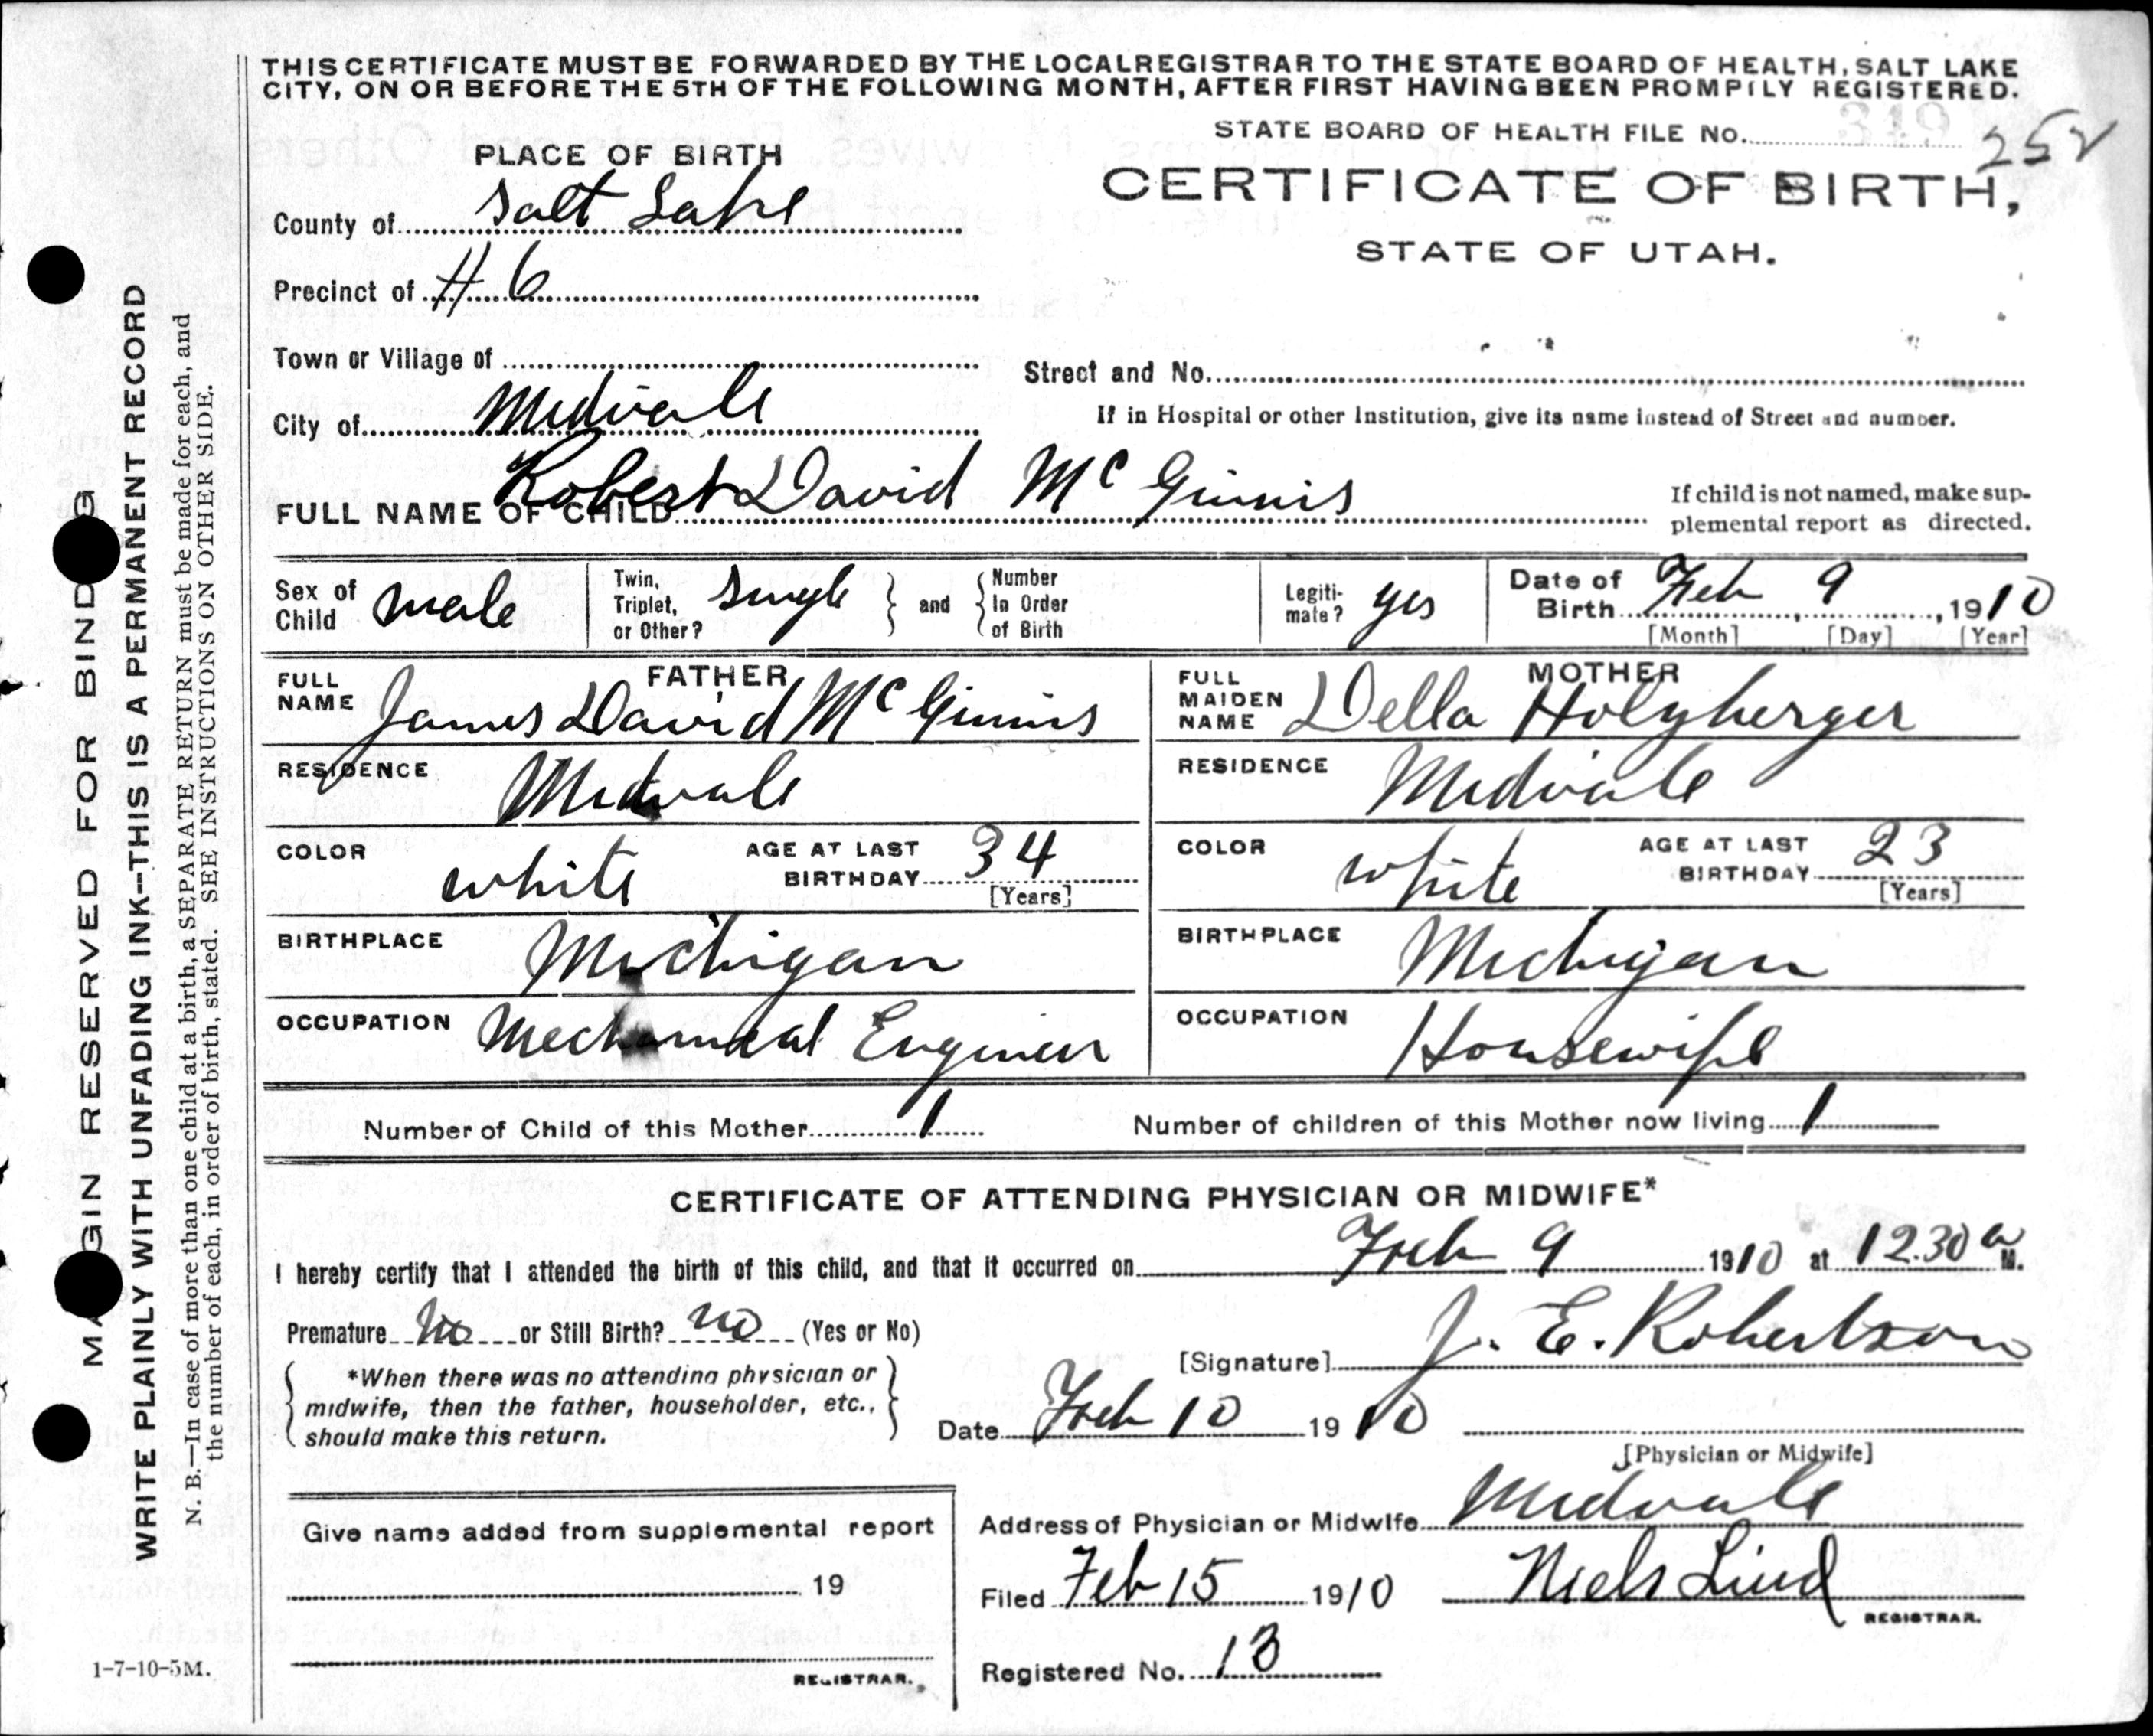 THIS CERTIFICATE MUST BE FORWARDED BY THE LOCAL REGISTRAR TO THE STATE BOARD OF HEALTH, SALT LAKE
CITY, ON OR BEFORE THE 5TH OF THE FOLLOWING MONTH, AFTER FIRST HAVING BEEN PROMPTLY REGISTERED.
STATE BOARD OF HEALTH FILE No. 349
252
PLACE OF BIRTH
CERTIFICATE OF BIRTH,
STATE OF UTAH.
County of Salt Lake
Precinct of # 6
Town or Village of
Street and No.
City of Midvale
If in Hospital or other Institution, give its name instead of Street and number.
FULL NAME OF CHILD Robert David McGinnis
If child is not named, make sup-
plemental report as directed.
Sex of Child male
Twin, Triplet, or Other? Single and Number In Order of Birth
Legiti-mate? yes
Date of Birth Feb 9, 1910
[Month] [Day] [Year]
FATHER
FULL NAME James David McGinnis
RESIDENCE Midvale
COLOR white AGE AT LAST BIRTHDAY 34
[Years]
BIRTHPLACE Michigan
OCCUPATION Mechanical Engineer
MOTHER
FULL MAIDEN NAME Della
RESIDENCE Midvale
COLOR white AGE AT LAST BIRTHDAY 23
[Years]
BIRTHPLACE Michigan
OCCUPATION Housewife
Number of Child of this Mother 1 Number of children of this Mother now living 1
CERTIFICATE OF ATTENDING PHYSICIAN OR MIDWIFE*
I hereby certify that I attended the birth of this child, and that it occurred on Feb 9 1910 at 12.30 a M.
Premature No or Still Birth? no (Yes or No)
[Signature] J. E. Robertson
*When there was no attending physician or
midwife, then the father, householder, etc.,
should make this return.
Date Feb 10 1910
[Physician or Midwife]
Give name added from supplemental report
19
REGISTRAR.
Address of Physician or Midwife Midvale
Filed Feb 15 1910 Niels Lind
REGISTRAR.
Registered No. 13
1-7-10-5M.
MARGIN RESERVED FOR BINDING
WRITE PLAINLY WITH UNFADING INK--THIS IS A PERMANENT RECORD
N. B.—In case of more than one child at a birth, a SEPARATE RETURN must be made for each, and
the number of each, in order of birth, stated. SEE INSTRUCTIONS ON OTHER SIDE.